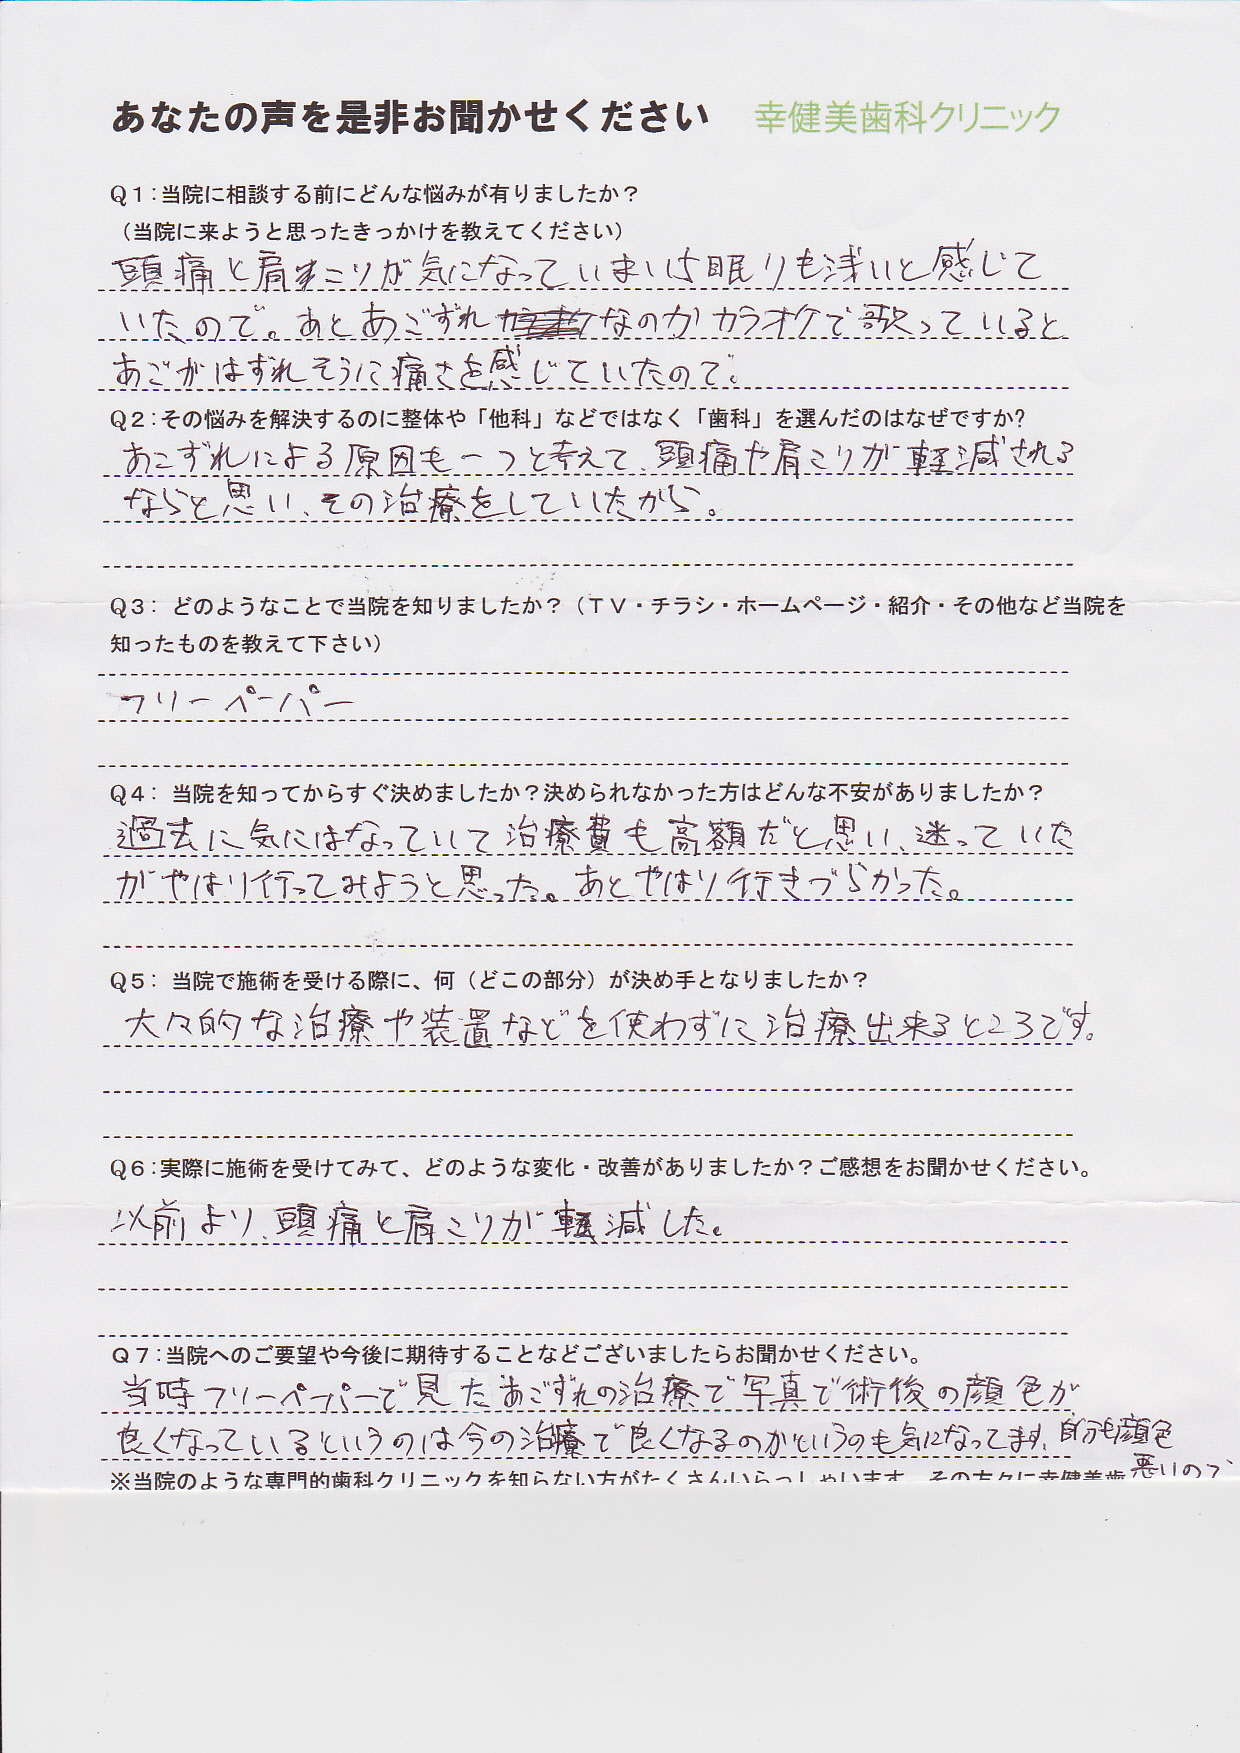 あなたの声を是非お聞かせください　幸健美歯科クリニック
Q1:当院に相談する前にどんな悩みが有りましたか？
（当院に来ようと思ったきっかけを教えてください）
頭痛と肩こりが気になっていまい眠りも浅いと感じて
いたので。あとあごずれなのかカラオケで歌っていると
あごがはずれそうに痛さを感じていたので。
Q2:その悩みを解決するのに整体や「他科」などではなく「歯科」を選んだのはなぜですか?
あごずれによる原因も一つと考えて、頭痛や肩こりが軽減される
ならと思い、その治療をしていたから。
Q3: どのようなことで当院を知りましたか？（ＴＶ・チラシ・ホームページ・紹介・その他など当院を
知ったものを教えて下さい）
フリーペーパー
Q4: 当院を知ってからすぐ決めましたか？決められなかった方はどんな不安がありましたか？
過去に気にはなっていて治療費も高額だと思い、迷っていた
がやはり行ってみようと思った。あとやはり行きづらかった。
Q5: 当院で施術を受ける際に、何（どこの部分）が決め手となりましたか？
大々的な治療や装置などを使わずに治療出来るところです。
Q6:実際に施術を受けてみて、どのような変化・改善がありましたか？ご感想をお聞かせください。
以前より、頭痛と肩こりが軽減した。
Q7:当院へのご要望や今後に期待することなどございましたらお聞かせください。
当時フリーペーパーで見たあごずれの治療で写真で術後の顔色が
良くなっているというのは今の治療で良くなるのかというのも気になってます、自分も顔色
悪いので
※当院のような専門的歯科クリニックを知らない方がたくさんいらっしゃいます。その方々に幸健美歯